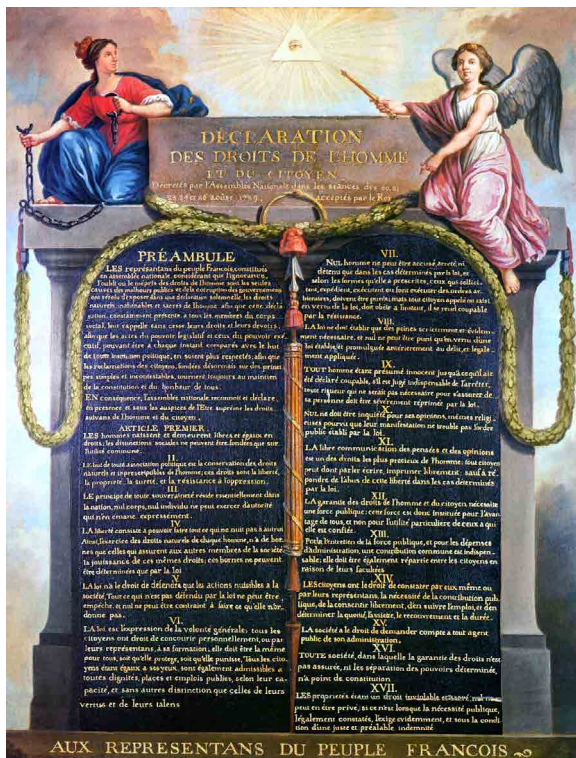 DÉCLARATION
DES DROITS DE L'HOMME
ET DU CITOYEN,
Décrétés par l'Assemblée Nationale dans les séances des 20, 21
23, 24 et 26 août 1789, acceptés par le Roi
PRÉAMBULE
LES représentans du peuple François, constitués
en assemblée nationale, considérant que l'ignorance,
l'oubli ou le mépris des droits de l'homme sont les seules
causes des malheurs publics et de la corruption des gouvernemens
ont résolu d'exposer dans une déclaration solemnelle, les droits
naturels, inaliénables et sacrés de l'homme; afin que cette décla
ration, constamment présente à tous les membres du corps
social, leur rappelle sans cesse leurs droits et leurs devoirs;
afin que les actes du pouvoir législatif et ceux du pouvoir exé
cutif, pouvant être à chaque instant comparés avec le but
de toute institution politique, en soient plus respectés; afin que
les réclamations des citoyens, fondées désormais sur des princi
pes simples et incontestables, tournent toujours au maintien
de la constitution et du bonheur de tous.
EN conséquence, l'assemblée nationale reconnoît et déclare,
en présence et sous les auspices de l'Etre suprême les droits
suivans de l'homme et du citoyen.
ARTICLE PREMIER.
LES hommes naissent et demeurent libres et égaux en
droits; les distinctions sociales ne peuvent être fondées que sur
l'utilité commune.
II.
LE but de toute association politique est la conservation des droits
naturels et imprescriptibles de l'homme; ces droits sont la liberté,
la propriété, la sureté, et la résistance à l'oppression.
III.
LE principe de toute souveraineté réside essentiellement dans
la nation, nul corps, nul individu ne peut exercer d'autorité
qui n'en émane expressément.
IV.
LA liberté consiste à pouvoir faire tout ce qui ne nuit pas à autrui
Ainsi, l'exercice des droits naturels de chaque homme, n'a de bor-
nes que celles qui assurent aux autres membres de la société
la jouissance de ces mêmes droits; ces bornes ne peuvent
être déterminées que par la loi
V.
LA loi n'a le droit de défendre que les actions nuisibles à la
société. Tout ce qui n'est pas défendu par la loi ne peut être
empêché, et nul ne peut être contraint à faire ce qu'elle n'or-
donne pas.
VI.
LA loi est l'expression de la volonté générale; tous les
citoyens ont droit de concourir personnellement, ou par
leurs représentans, à sa formation; elle doit être la même
pour tous, soit qu'elle protege, soit qu'elle punisse. Tous les cito
yens étant égaux à ses yeux, sont également admissibles à
toutes dignités, places et emplois publics, selon leur ca-
pacité, et sans autres distinction que celles de leurs
vertus et de leurs talens
VII
NUL homme ne peut être accusé, arreté, ni
détenu que dans les cas déterminés par la loi, et
selon les formes qu'elle a prescrites, ceux qui sollici-
tent, expédient, exécutent ou font exécuter des ordres ar-
bitraires, doivent être punis; mais tout citoyen appelé ou saisi
en vertu de la loi, doit obéir à l'instant, il se rend coupable
par la résistance.
VIII.
LA loi ne doit établir que des peines strictement et évidem-
ment nécessaire, et nul ne peut être puni qu'en vertu d'une
loi établie, et promulguée antérieurement au délit, et légale-
ment appliquée.
IX.
TOUT homme étant présumé innocent jusqu'à ce qu'il ait
été déclaré coupable, s'il est jugé indispensable de l'arrêter,
toute rigueur qui ne serait pas nécessaire pour s'assurer de
sa personne doit être sévèrement réprimée par la loi.
X.
NUL ne doit être inquiété pour ses opinions, mêmes religi
euses pourvu que leur manifestation ne trouble pas l'ordre
public établi par la loi.
XI.
LA libre communication des pensées et des opinions
est un des droits les plus précieux de l'homme; tout citoyen
peut donc parler, écrire, imprimer librement: sauf à ré-
pondre de l'abus de cette liberté dans les cas déterminés
par la loi.
XII.
LA garantie des droits de l'homme et du citoyen nécessite
une force publique; cette force est donc instituée pour l'avan
tage de tous, et non pour l'utilité particuliere de ceux à qui
elle est confiée.
XIII.
POUR l'entretien de la force publique, et pour les dépenses
d'administration, une contribution commune est indispen-
sable; elle doit être également répartie entre les citoyens en
raison de leurs facultés.
XIV.
LES citoyens ont le droit de constater par eux même ou
par leurs représentans, la nécessité de la contribution pub-
lique, de la consentir librement, d'en suivre l'emploi, et d'en
déterminer la quotité, l'assiette, le recouvrement et la durée.
XV.
LA société a le droit de demander compte à tout agent
public de son administration.
XVI.
TOUTE société, dans laquelle la garantie des droits n'est
pas assurée, ni les séparation des pouvoirs déterminée,
n'a point de constitution.
XVII.
LES propriétés étant un droit inviolable et sacré, nul ne
peut en être privé, si ce n'est lorsque la nécessité publique,
légalement constatée, l'exige évidemment, et sous la condi
tion d'une juste et préalable indemnité
AUX REPRESENTANS DU PEUPLE FRANCOIS